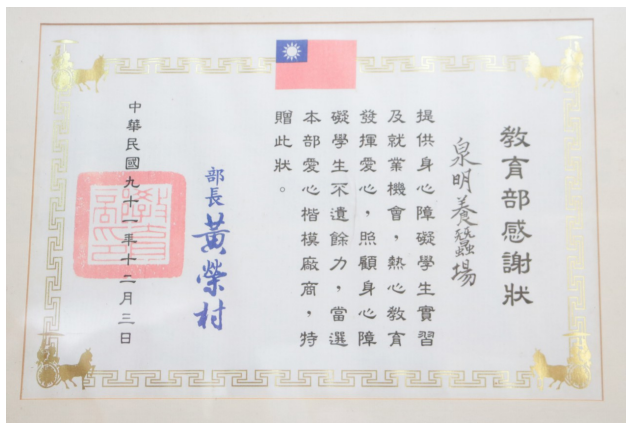 教育部感謝狀
泉明養蠶場
提供身心障礙學生實習
及就業機會，熱心教育
發揮愛心，照顧身心障
礙學生不遺餘力，當選
本部愛心楷模廠商，特
贈此狀。
部長 黃榮村
中華民國九十一年十二月三日